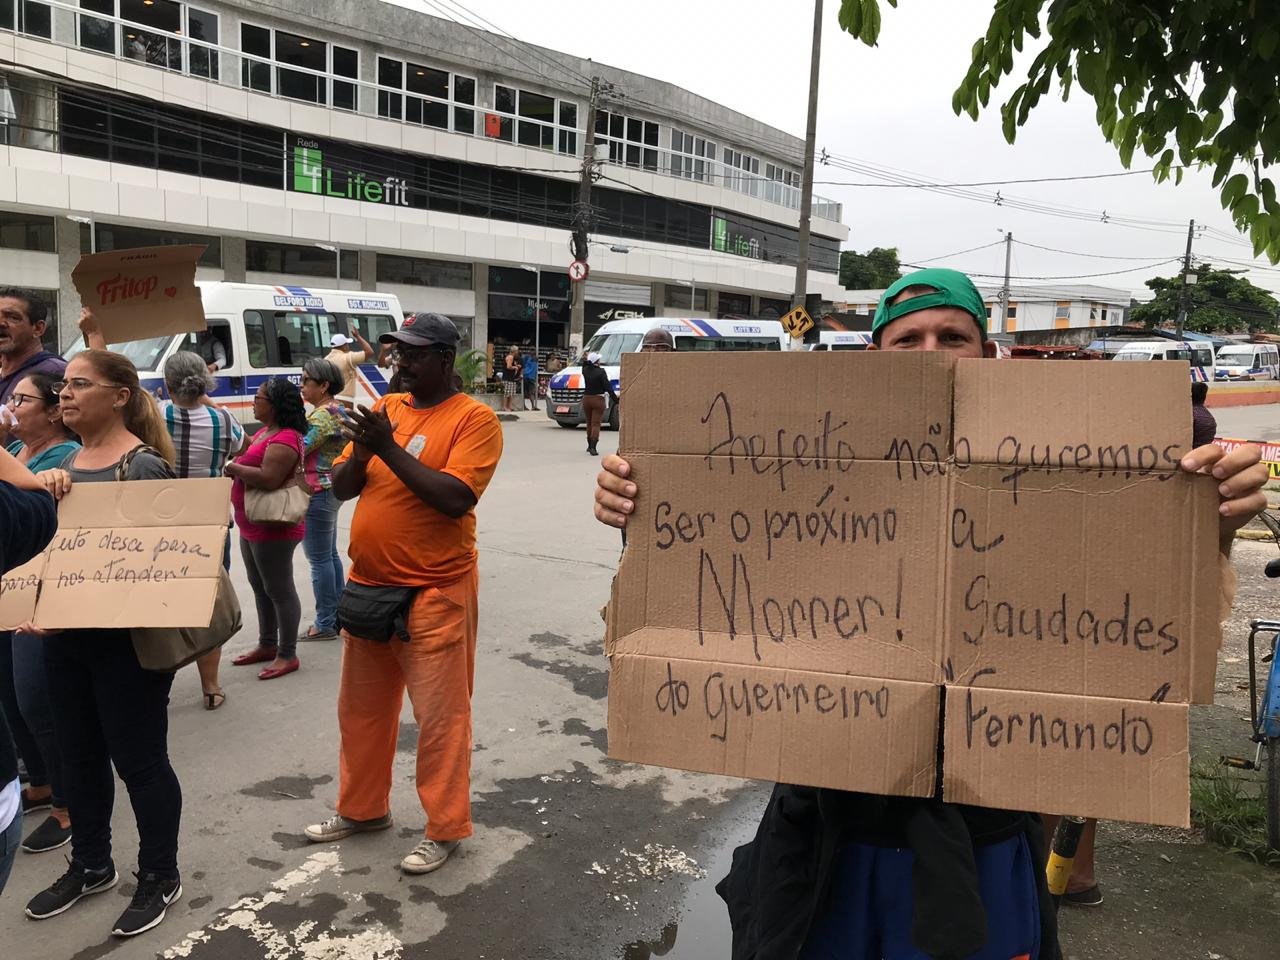 Rede
Lifefit
Lifefit
FRÁGIL
Fritop
BELFORD ROXO
SGT. RONCALLI
LOTE XV
SGT.
CRK
feito desça para
para nos atender"
Prefeito não quremos
ser o próximo a
Morrer! Saudades
do guerreiro "Fernando"